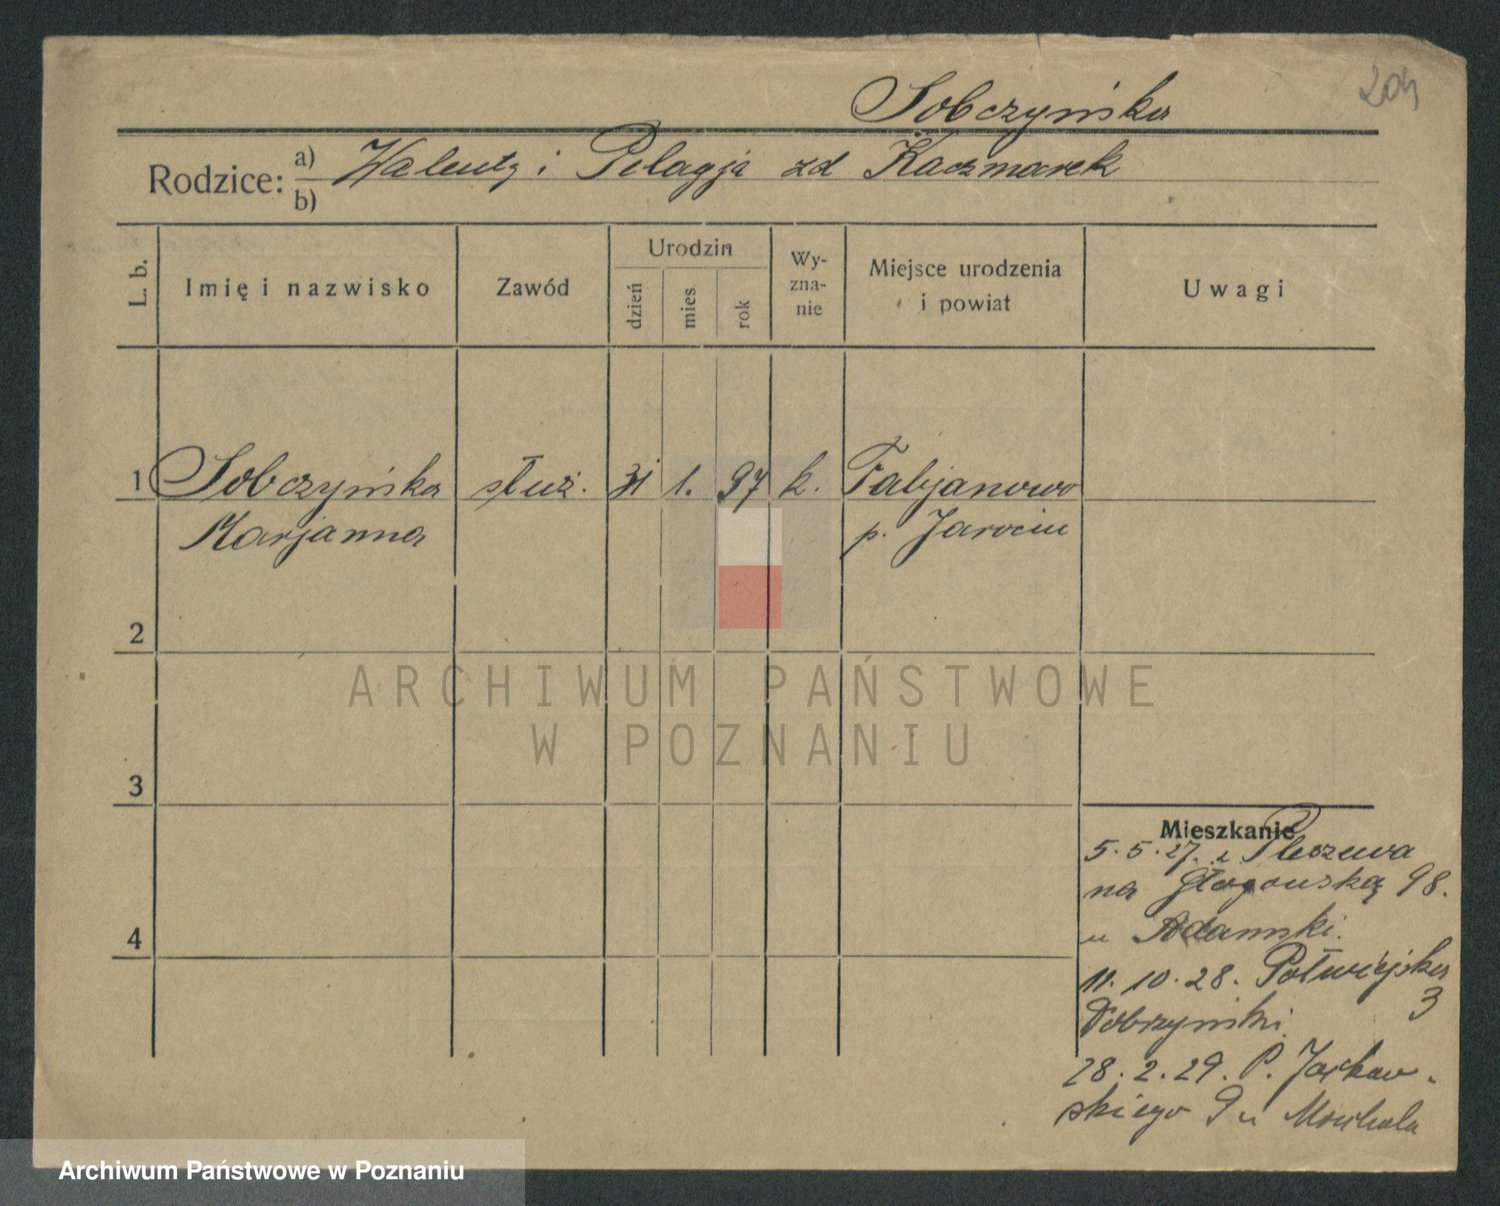 204
Sobczyńska
Rodzice: a) Walenty i Pelagja zd Kaczmarek
b)
L. b. Imię i nazwisko Zawód Urodzin dzień mies rok Wy-zna-nie Miejsce urodzenia i powiat Uwagi
1 Sobczyńska służ. 31 1. 97 k. Fabjanowo
Marjanna p. Jarocin
2
3
4
Mieszkanie
5.5.27. z Pleszewa
na Głogouską 98.
u Adamski.
11.10.28. Półwiejska
3
Dobrzyński
28.2.29. P. Jackow-
skiego 9 u
ARCHIWUM PAŃSTWOWE
W POZNANIU
Archiwum Państwowe w Poznaniu